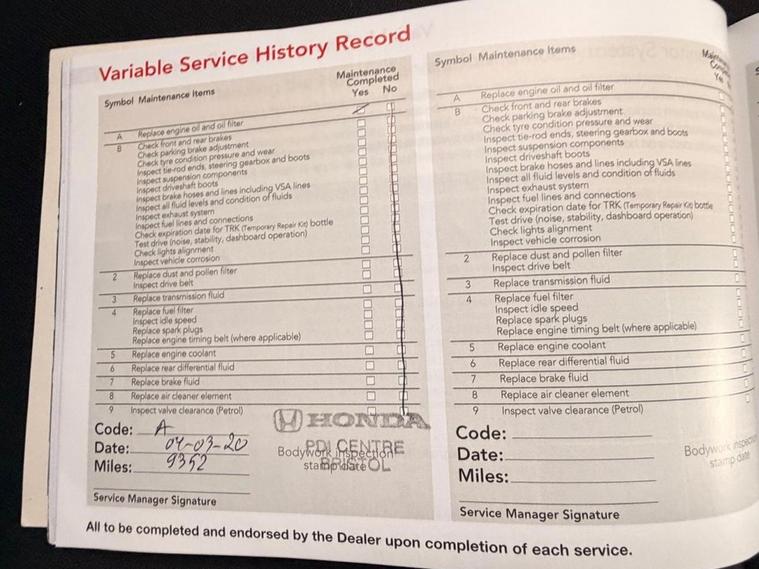 Variable Service History Record
Symbol Maintenance Items
Maintenance
Completed
Yes No
A Replace engine oil and oil filter
B Check front and rear brakes
Check parking brake adjustment
Check tyre condition pressure and wear
Inspect tie-rod ends, steering gearbox and boots
Inspect suspension components
Inspect driveshaft boots
Inspect brake hoses and lines including VSA lines
Inspect all fluid levels and condition of fluids
Inspect exhaust system
Inspect fuel lines and connections
Check expiration date for TRK (Temporary Repair Kit) bottle
Test drive (noise, stability, dashboard operation)
Check lights alignment
Inspect vehicle corrosion
2 Replace dust and pollen filter
Inspect drive belt
3 Replace transmission fluid
4 Replace fuel filter
Inspect idle speed
Replace spark plugs
Replace engine timing belt (where applicable)
5 Replace engine coolant
6 Replace rear differential fluid
7 Replace brake fluid
8 Replace air cleaner element
9 Inspect valve clearance (Petrol)
Code: A
Date: 04-03-20
Miles: 9352
HONDA
PDI CENTRE
BRISTOL
Bodywork inspection
stamp date
Service Manager Signature
Symbol Maintenance Items
A Replace engine oil and oil filter
B Check front and rear brakes
Check parking brake adjustment
Check tyre condition pressure and wear
Inspect tie-rod ends, steering gearbox and boots
Inspect suspension components
Inspect driveshaft boots
Inspect brake hoses and lines including VSA lines
Inspect all fluid levels and condition of fluids
Inspect exhaust system
Inspect fuel lines and connections
Check expiration date for TRK (Temporary Repair Kit) bottle
Test drive (noise, stability, dashboard operation)
Check lights alignment
Inspect vehicle corrosion
2 Replace dust and pollen filter
Inspect drive belt
3 Replace transmission fluid
4 Replace fuel filter
Inspect idle speed
Replace spark plugs
Replace engine timing belt (where applicable)
5 Replace engine coolant
6 Replace rear differential fluid
7 Replace brake fluid
8 Replace air cleaner element
9 Inspect valve clearance (Petrol)
Code:
Date:
Miles:
Bodywork inspection
stamp date
Service Manager Signature
All to be completed and endorsed by the Dealer upon completion of each service.